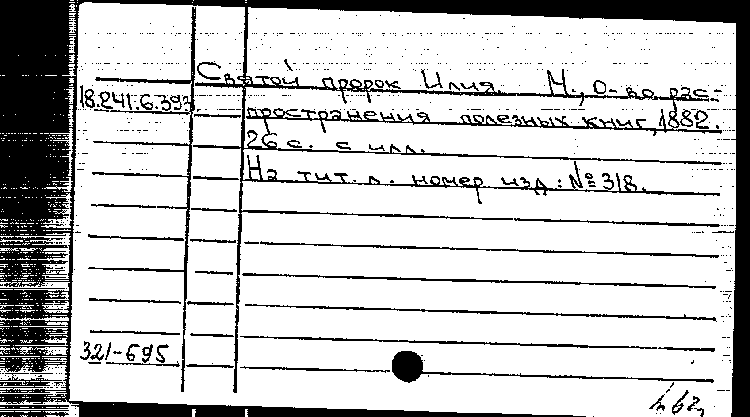 Святой пророк Илия. М., О-во рас-
18.241.6.393
пространения полезных книг, 1882.
26 с. с илл.
На тит. л. номер изд: № 318.
321-695